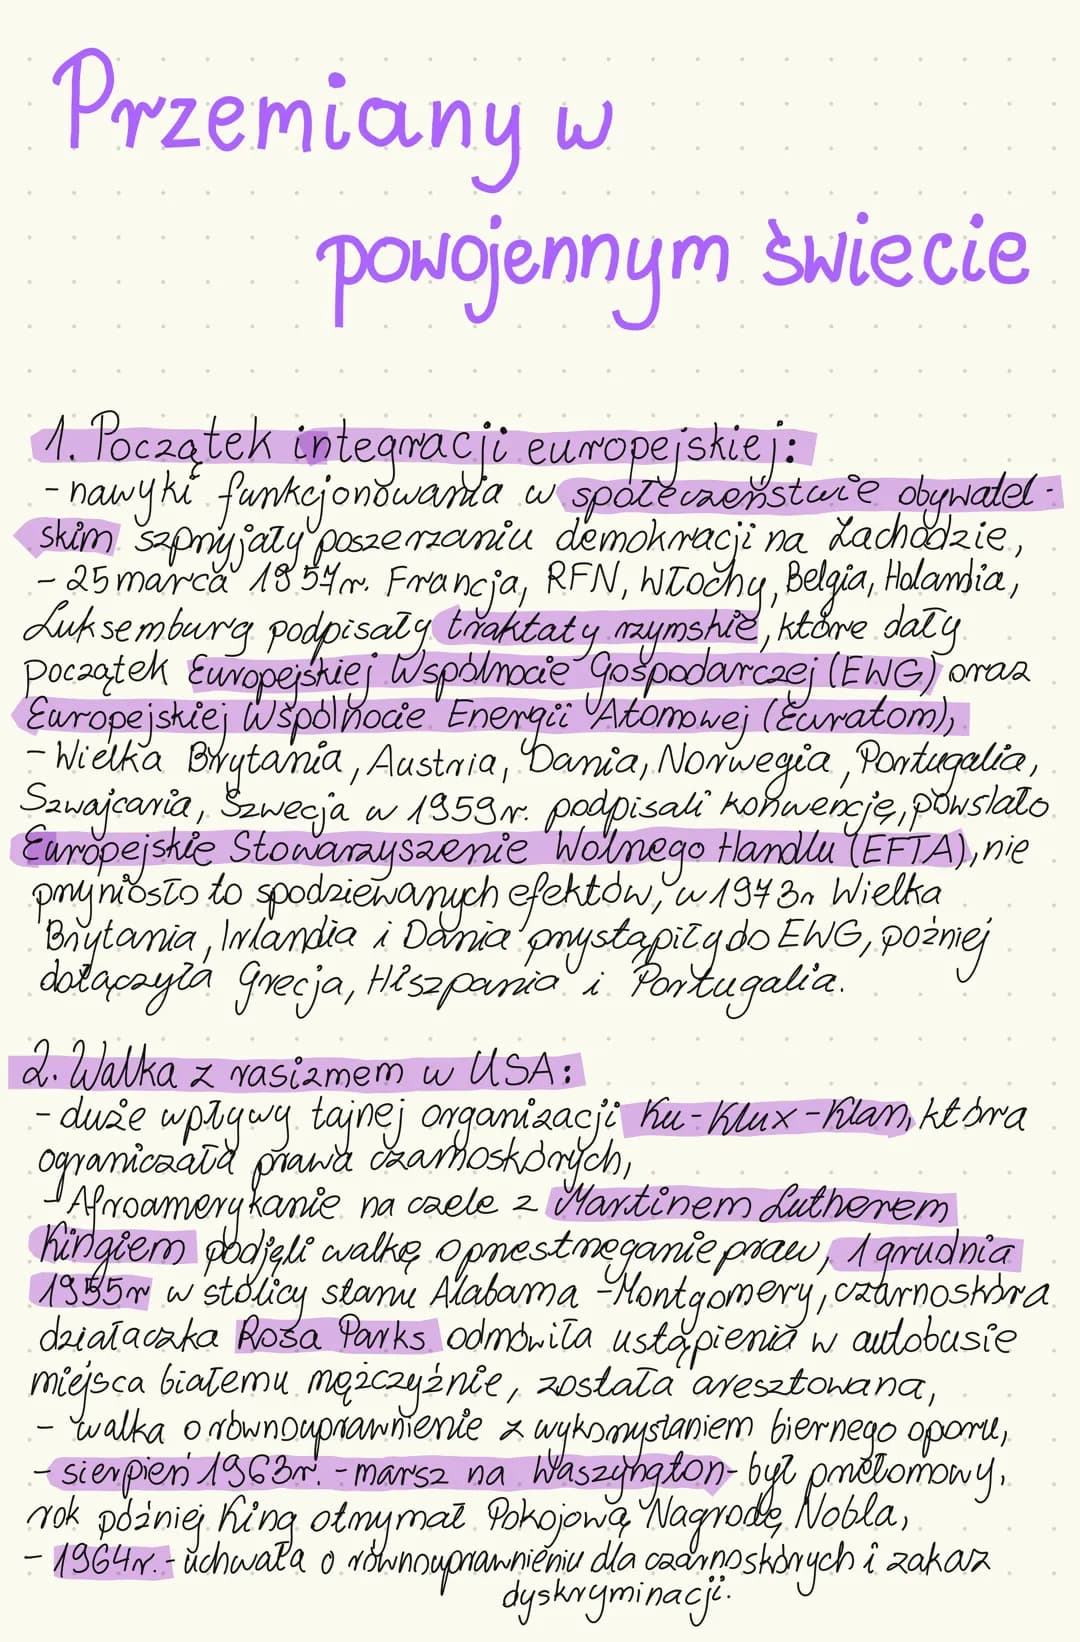 Przemiany w
powojennym świecie
1. Początek integracji europejskiej:
- nawyki funkcjonowania w społeczeństwie obywatel-
skim szprzyjały poszerzaniu demokracji na Zachodzie,
- 25 marca 1957r. Francja, RFN, Włochy, Belgia, Holandia,
Luksemburg podpisały traktaty rzymskie, które dały
początek Europejskiej Wspólnocie Gospodarczej (EWG) oraz
Europejskiej Wspólnocie Energii Atomowej (Euratom),
- Wielka Brytania, Austria, Dania, Norwegia, Portugalia,
Szwajcaria, Szwecja w 1959r. podpisali konwencję, powstało
Europejskie Stowarzyszenie Wolnego Handlu (EFTA), nie
przyniosło to spodziewanych efektów, w 1973r Wielka
Brytania, Irlandia i Dania przystąpiły do EWG, pożniej
dołączyła Grecja, Hiszpania i Portugalia.
2. Walka z rasizmem w USA:
- duże wpływy tajnej organizacji Ku-Klux-Klan, która
ograniczała prawa czarnoskórych,
- Afroamerykanie na czele z Martinem Lutherem
Kingiem podjęli walkę o przestrzeganie praw, 1 grudnia
1955r w stolicy stanu Alabama - Montgomery, czarnoskóra
działaczka Rosa Parks odmówiła ustąpienia w autobusie
miejsca białemu mężczyźnie, została aresztowana,
- walka o równouprawnienie z wykorzystaniem biernego oporu,
- sierpień 1963r. - marsz na Waszyngton - był przełomowy,
rok później King otrzymał Pokojową Nagrodę Nobla,
- 1964r. - uchwała o równouprawnieniu dla czarnoskórych i zakaz
dyskryminacji.